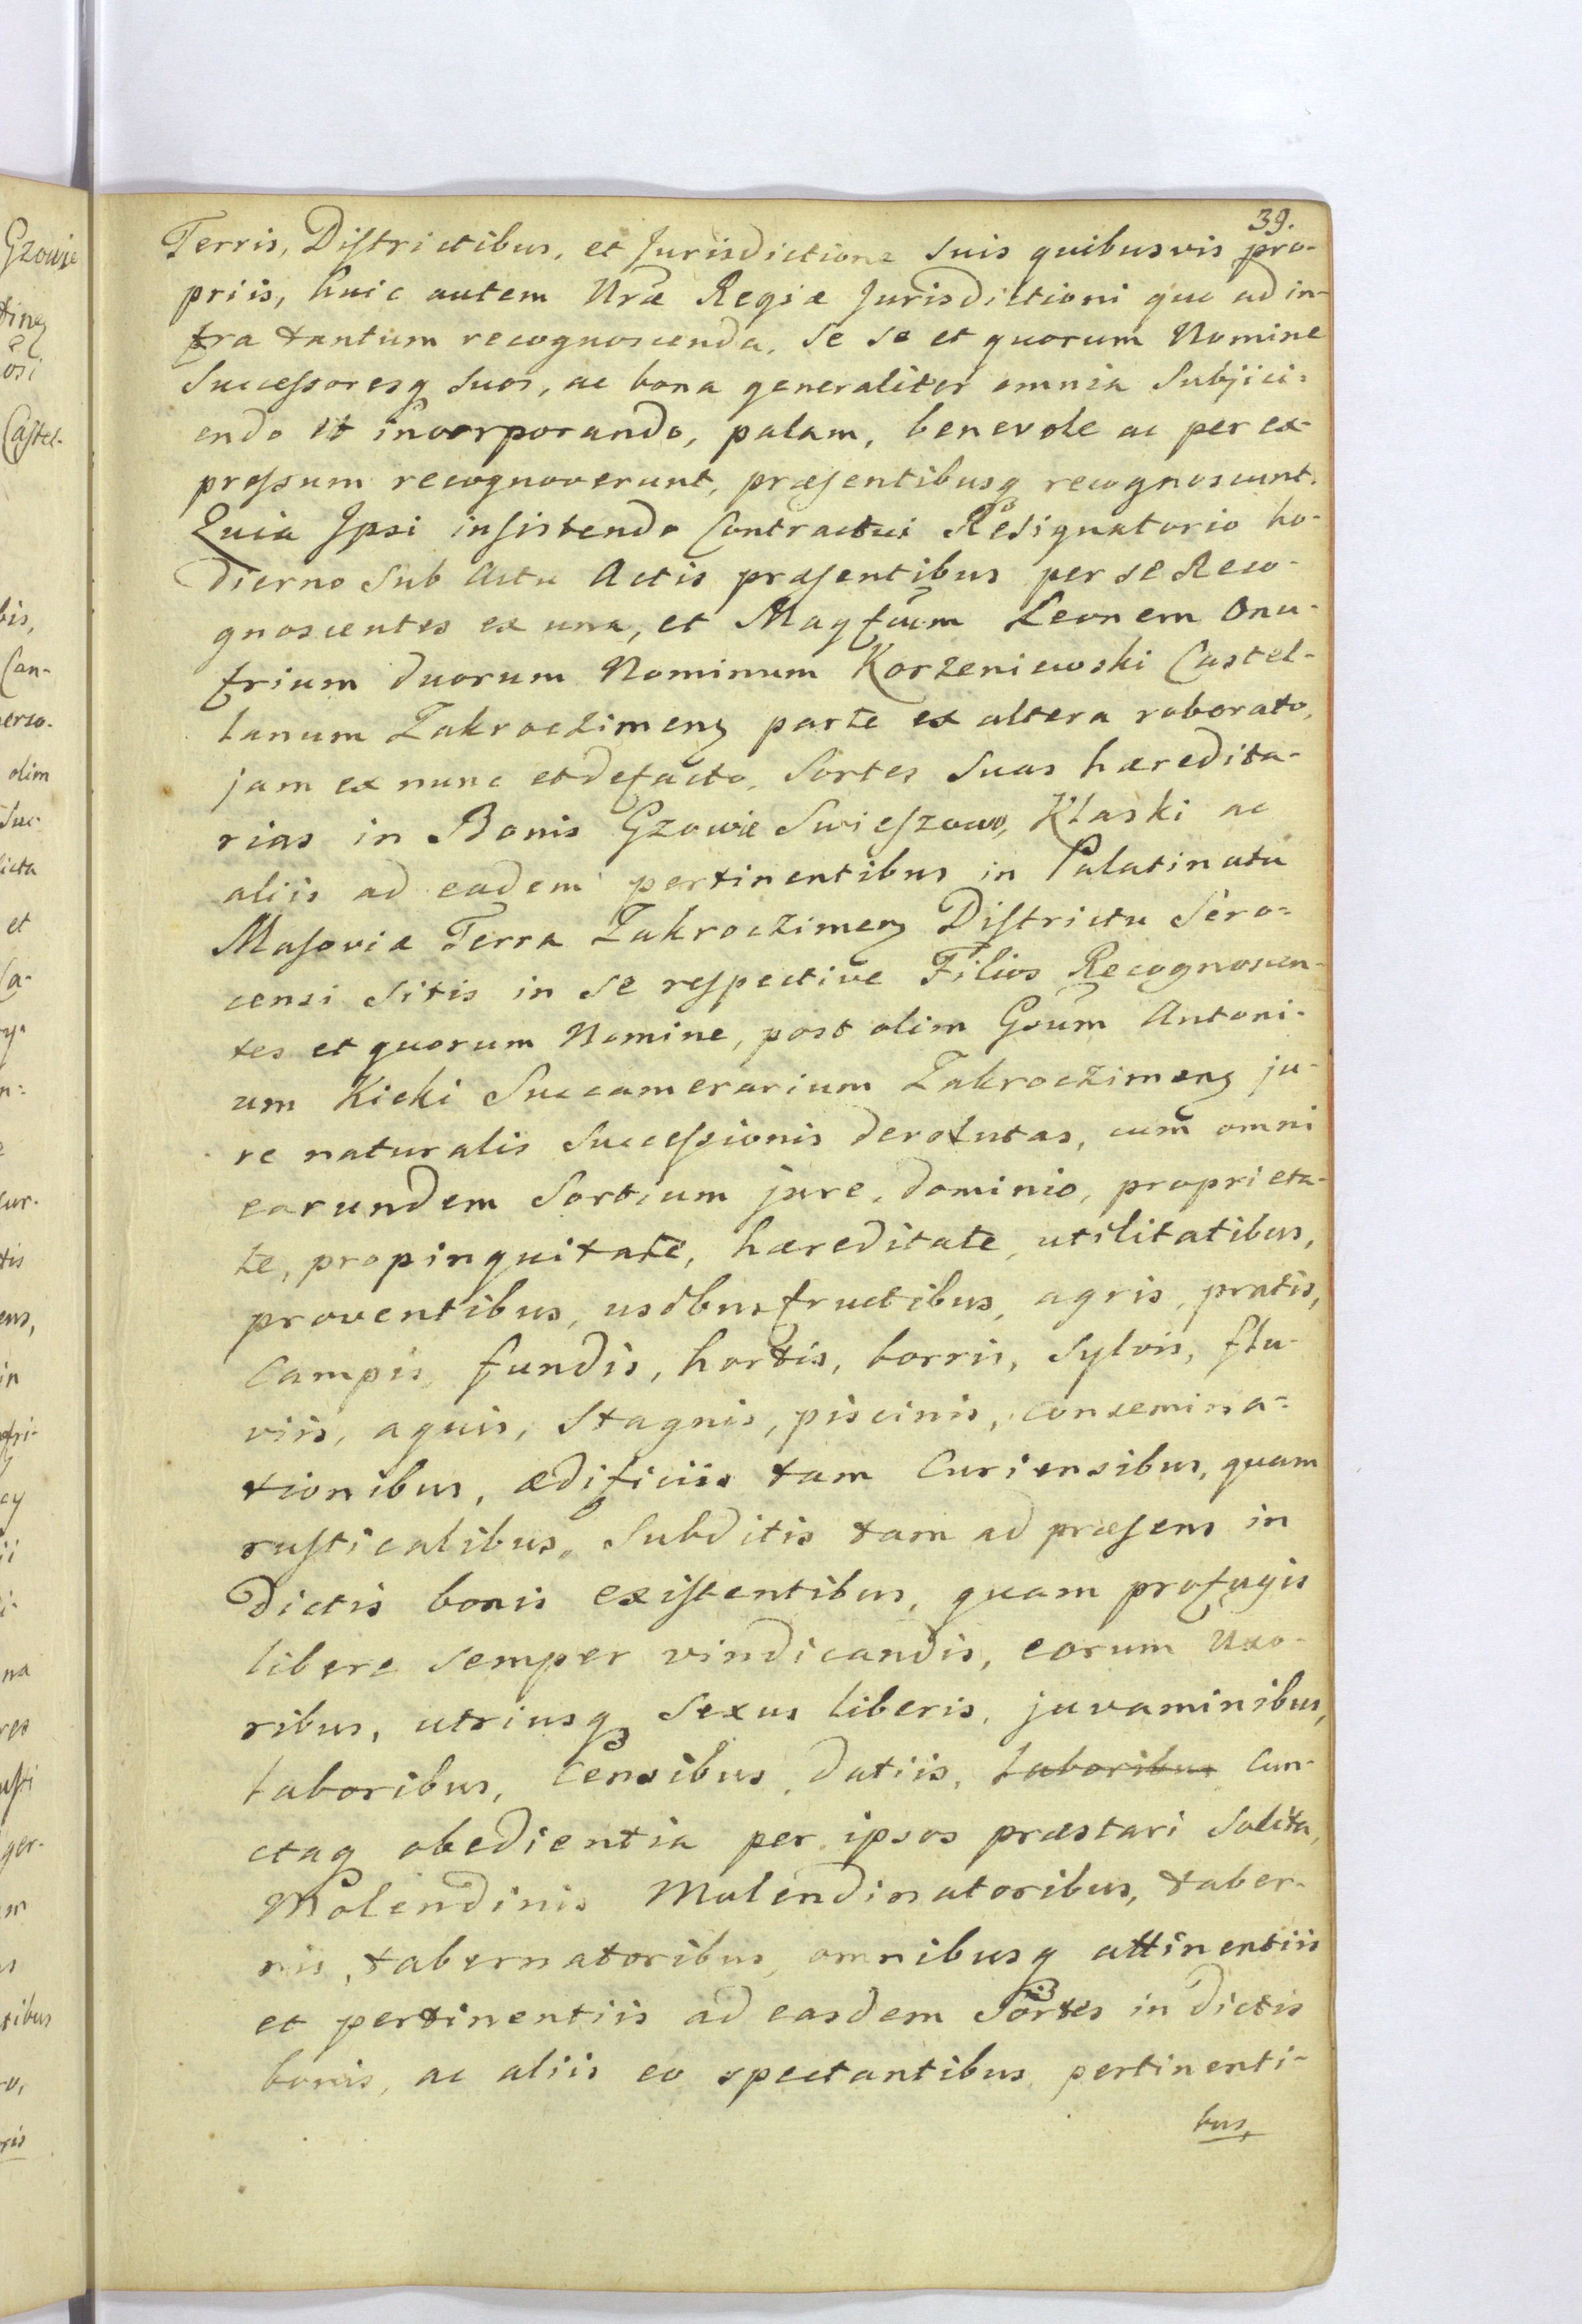 39.
Terris, Districtibus, et Jurisdictione suis quibusvis pro-
priis, huic autem Nrae Regiae Jurisdictioni quo ad in-
fra tantum recognoscenda, se se et quorum Nomine
Successoresq suos, ac bona generaliter omnia Subjici=
endo et incorporando, palam, benevole ac per ex-
pressum recognoverunt, praesentibusq recognoscunt.
Quia Ipsi insistendo Contractui Resignatorio ho-
dierno sub Actu Actis praesentibus per se Reco-
gnoscentes ex una, et Magfcum Leonem Onu-
frium duorum Nominum Korzeniewski Castel-
lanum Zakroczimens parte ex altera roborato,
jam ex nunc et defacto, Sortes Suas haeredita-
rias in Bonis Gzowie Swieszowo, Klaski ac
aliis ad eadem pertinentibus in Palatinatu
Masoviae Terra Zakroczimens Districtu Sero=
censi Sitis in se respective Filios Recognoscen-
tes et quorum Nomine, post olim Gsum Antoni-
um Kicki Succamerarium Zakroczimens ju-
re naturalis Successionis devolutas, cum omni
earundem Sortium jure, dominio, proprieta-
te, propinquitate, haereditate, utilitatibus,
proventibus, usibusfructibus, agris, pratis,
Campis, fundis, hortis, borris, Sylvis, flu-
viis, aquis, Stagnis, piscinis, consemina=
tionibus, aedificiis tam Curiensibus, quam
rusticalibus, Subditis tam ad praesens in
Dictis bonis existentibus, quam profugis
libere semper vindicandis, eorum Uxo-
ribus, utriusq Sexus liberis, juvaminibus,
laboribus, Censibus, datiis, laboribus Cun-
ctaq obedientia per ipsos praestari Solita,
Molendinis Molendinatoribus, taber-
nis, tabernatoribus, omnibusq attinentiis
et pertinentiis ad easdem Sortes in Dictis
bonis, ac aliis eo spectantibus pertinenti-
bus,